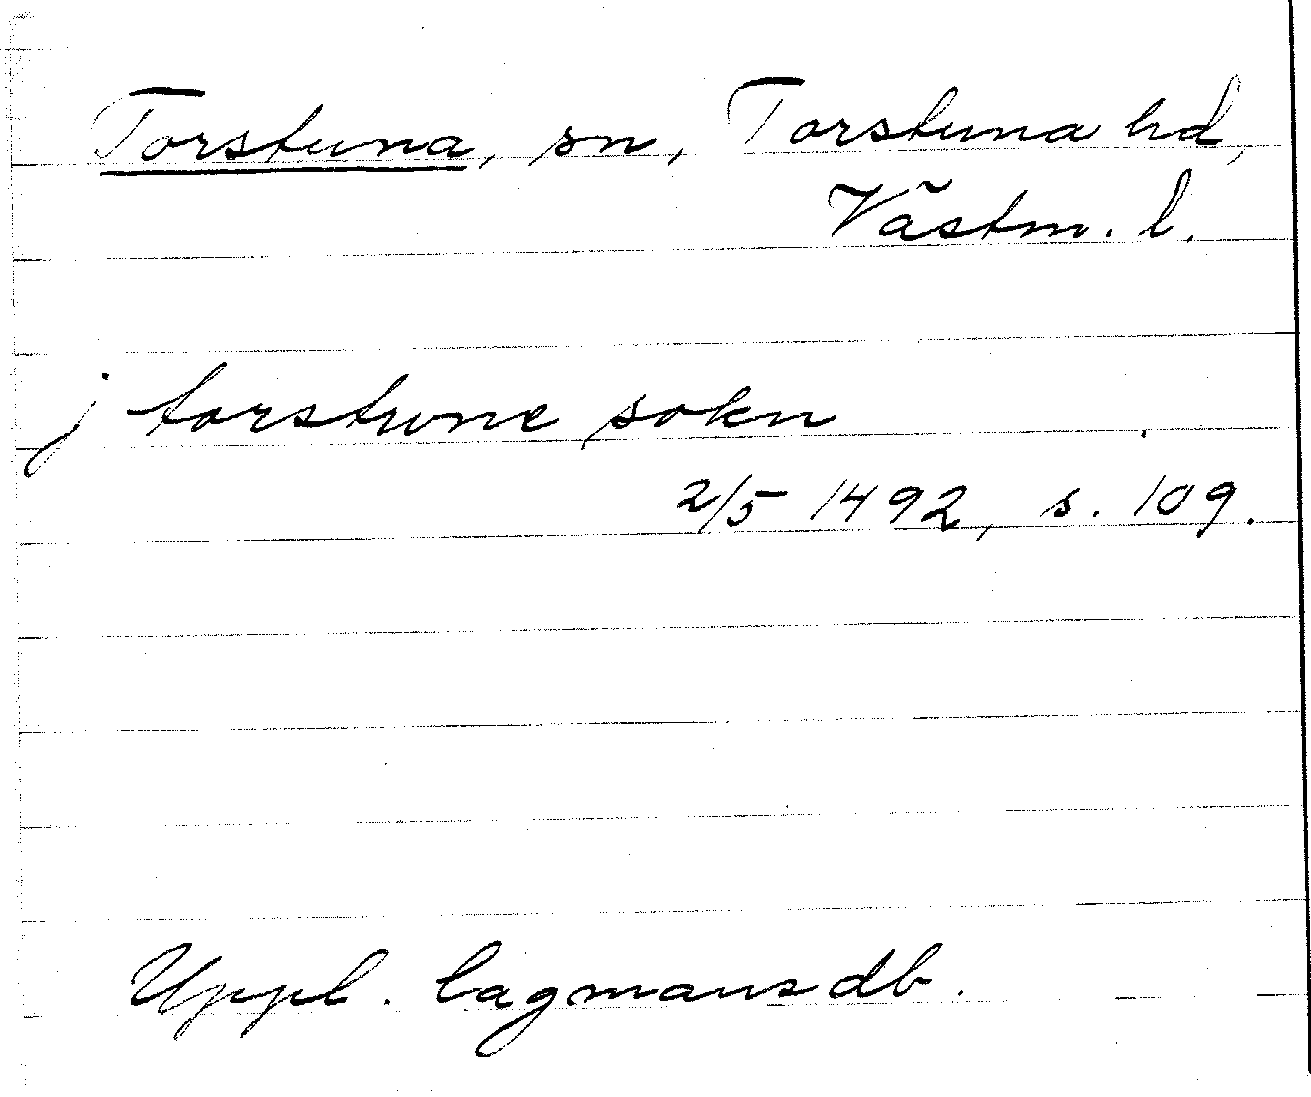 Torstuna, sn, Torstuna hd,
Västm. l.
j torstune sokn
2/5 1492, s. 109.
Uppl. lagmansdb.